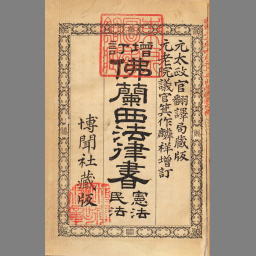 元太政官翻譯局藏版
元老院議官箕作麟祥增訂
增訂
佛蘭西法律書
憲法
民法
博聞社藏版